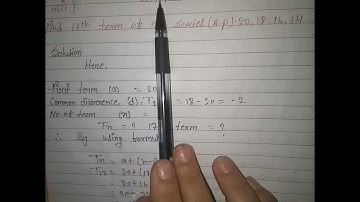 Find 17th term of the series (A.P) 20, 18, 16, 14
Solution
Here,
First term (a) = 20
Common difference (d) = T2 = 18 - 20 = -2
No. of term (n) =
Tn = ? 17 term = ?
∴ By using formula
Tn = a + (n-
T17 = 20 + (17
= 20 + 16
= 20 +